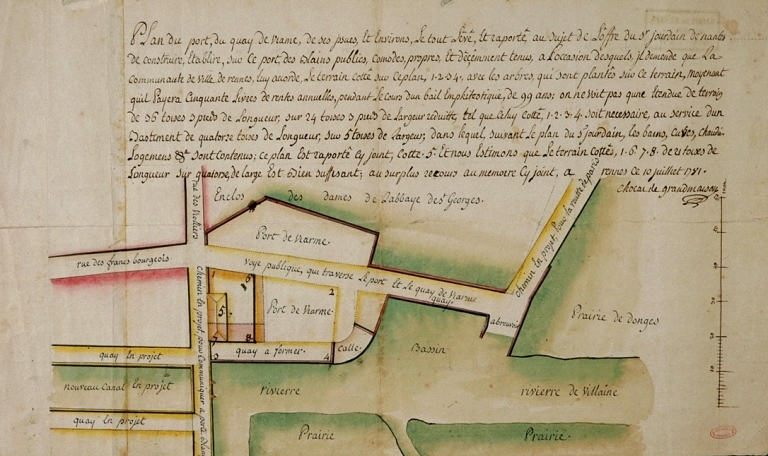 Plan du port, du quay de viarme, de ses issues, et Environs, Le tout Levé, et raporté au sujet de L'offre du Sr jourdain de nantes
de construire, Etablire, sur Ce port, des Bains publics, comodes, propres, et décemment tenus, a l'occasion desquels jl demende que La
Communauté de ville de rennes, luy acorde, Le terrain Cotté sur Ce plan, 1.2.3.4. avec les arbres, qui sont plantés sur Ce terrain, moyenant
qu'il Payera Cinquante Livres de rentes annuelles, pendant Le cours d'un bail Emphiteotique, de 99 ans; on ne voit pas qune Etendue de terrain
de 36 toises 3 pieds de Longueur, sur 24 toises 3 pieds de Largeur réduitte, tel que Celuy Cotté, 1.2.3.4. soit necessaire, au service d'un
Bastiment de quatorse toises de Longueur, sur 5 toises de Largeur, dans lequel, suivant Le plan du Sr jourdain, les bains, Cuves, chaudi
Logemens &c. sont contenus; ce plan Est raporté Cy joint, Cotte. 5. Et nous Estimons que Le terrain Cottés, 1.6.7.8. de 21 toises de
Longueur sur quatorse de large Est Bien suffisant; au surplus recours au memoire Cy joint, a rennes ce 10 juillet 1781.
Chocat de grandmaison
rue des Violiers
Enclos des dames de L'abbaye de St Georges.
Port de viarme
rue des francs bourgeois
voye publique, qui traverse Le port Et Le quay de viarme
quay
chemin En projet, pour la route de paris
Chemin En projet pour Communiquer
1
6
2
5.
Port de Viarme
7
8
3
quay a former
4
calle
abreuvoir
Bassin
Prairie de donges
quay En projet
nouveau Canal En projet
quay En projet
rivierre
rivierre de villaine
Prairie
Prairie.